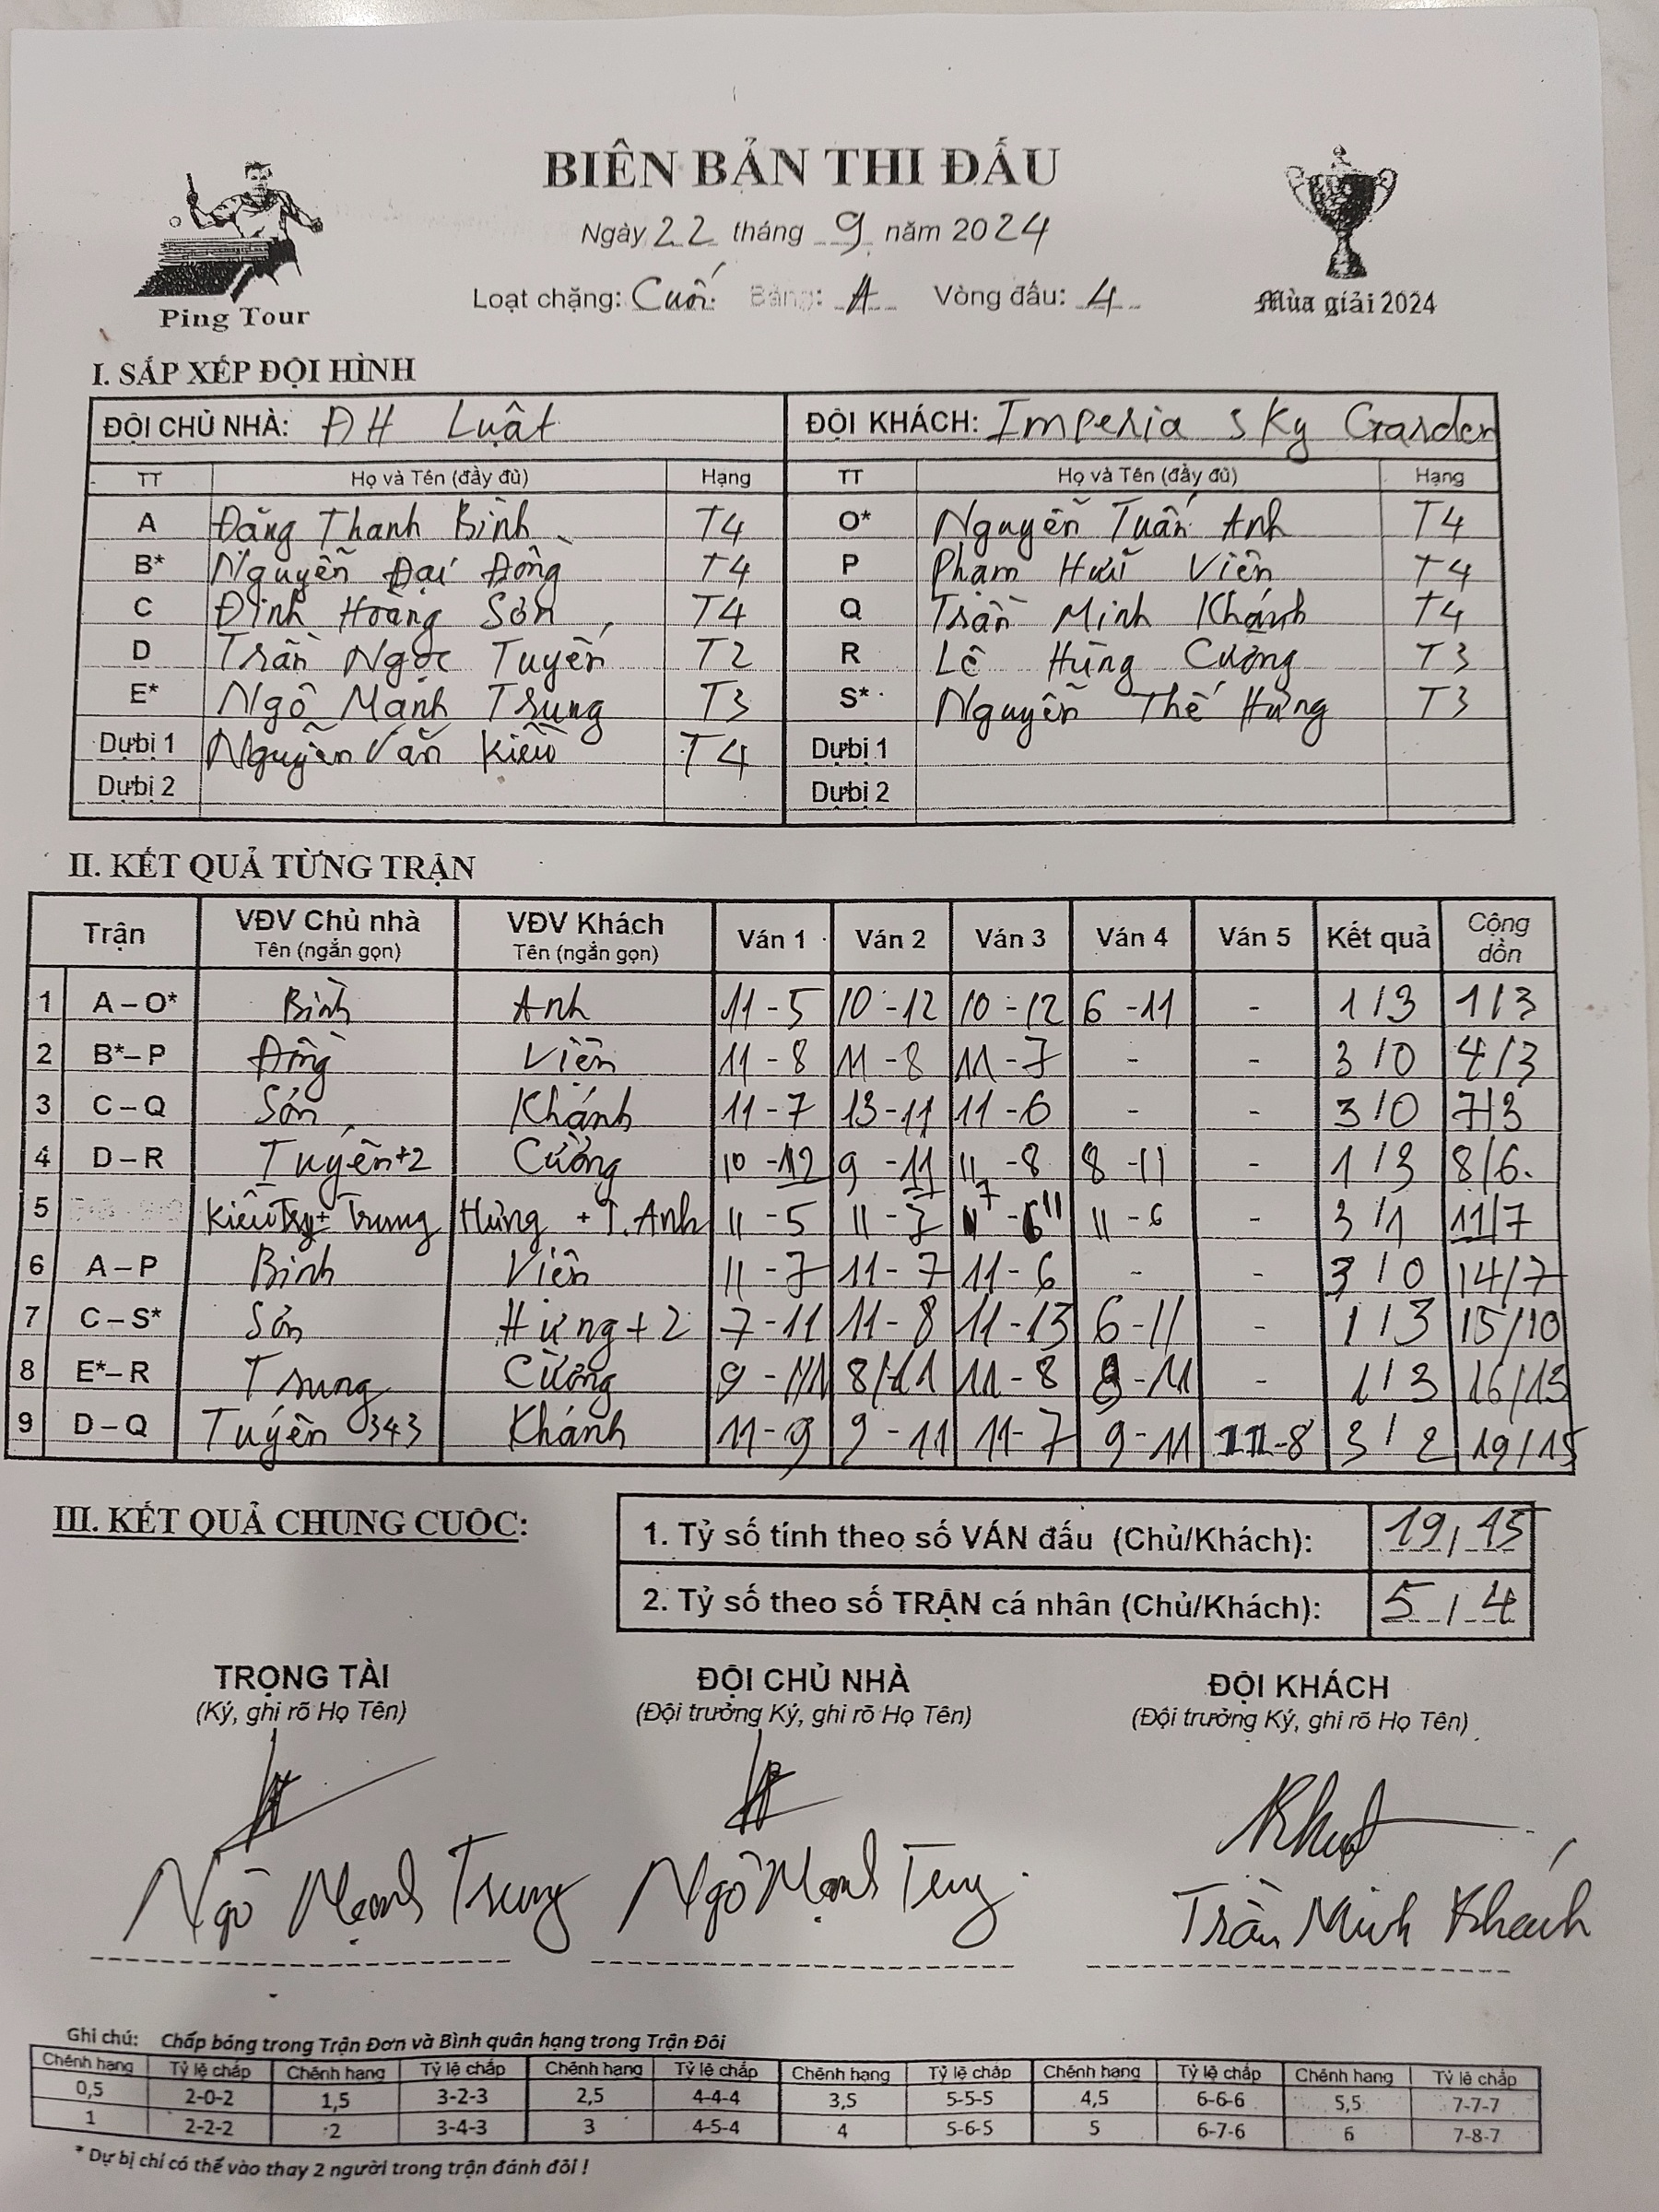 BIÊN BẢN THI ĐẤU
Ngày 22 tháng 9 năm 2024
Loạt chặng: Cuối Bảng: A Vòng đấu: 4
Ping Tour
Mùa giải 2024
I. SẮP XẾP ĐỘI HÌNH
ĐỘI CHỦ NHÀ: ĐH Luật ĐỘI KHÁCH: Imperia sky Garden
TT Họ và Tên (đầy đủ) Hạng TT Họ và Tên (đầy đủ) Hạng
A Đăng Thanh Bình T4 O* Nguyễn Tuấn Anh T4
B* Nguyễn Đại Đồng T4 P Phạm Hữu Viên T4
C Đinh Hoàng Sơn T4 Q Trần Minh Khánh T4
D Trần Ngọc Tuyến T2 R Lê Hùng Cường T3
E* Ngô Mạnh Trung T3 S* Nguyễn Thế Hưng T3
Dự bị 1 Nguyễn Văn Kiều T4 Dự bị 1
Dự bị 2 Dự bị 2
II. KẾT QUẢ TỪNG TRẬN
Trận VĐV Chủ nhà Tên (ngắn gọn) VĐV Khách Tên (ngắn gọn) Ván 1 Ván 2 Ván 3 Ván 4 Ván 5 Kết quả Cộng dồn
1 A – O* Bình Anh 11 - 5 10 - 12 10 - 12 6 - 11 - 1 / 3 1 / 3
2 B* – P Đồng Viên 11 - 8 11 - 8 11 - 7 - - 3 / 0 4 / 3
3 C – Q Sơn Khánh 11 - 7 13 - 11 11 - 6 - - 3 / 0 7 / 3
4 D – R Tuyến +2 Cường 10 - 12 9 - 11 11 - 8 8 - 11 - 1 / 3 8 / 6.
5 Kiều + Trung Hưng + T. Anh 11 - 5 11 - 7 7 - 11 11 - 6 - 3 / 1 11 / 7
6 A – P Bình Viên 11 - 7 11 - 7 11 - 6 - - 3 / 0 14 / 7
7 C – S* Sơn Hưng + 2 7 - 11 11 - 8 11 - 13 6 - 11 - 1 / 3 15 / 10
8 E* – R Trung Cường 9 - 11 8 / 11 11 - 8 - 11 - 1 / 3 16 / 13
9 D – Q Tuyến 343 Khánh 11 - 9 9 - 11 11 - 7 9 - 11 11 - 8 3 / 2 19 / 15
III. KẾT QUẢ CHUNG CUỘC:
1. Tỷ số tính theo số VÁN đấu (Chủ/Khách): 19 / 15
2. Tỷ số theo số TRẬN cá nhân (Chủ/Khách): 5 / 4
TRỌNG TÀI ĐỘI CHỦ NHÀ ĐỘI KHÁCH
(Ký, ghi rõ Họ Tên) (Đội trưởng Ký, ghi rõ Họ Tên) (Đội trưởng Ký, ghi rõ Họ Tên)
Ngô Mạnh Trung Ngô Mạnh Trung Trần Minh Khánh
Ghi chú: Chấp bóng trong Trận Đơn và Bình quân hạng trong Trận Đôi
Chênh hạng Tỷ lệ chấp Chênh hạng Tỷ lệ chấp Chênh hạng Tỷ lệ chấp Chênh hạng Tỷ lệ chấp Chênh hạng Tỷ lệ chấp Chênh hạng Tỷ lệ chấp
0,5 2-0-2 1,5 3-2-3 2,5 4-4-4 3,5 5-5-5 4,5 6-6-6 5,5 7-7-7
1 2-2-2 2 3-4-3 3 4-5-4 4 5-6-5 5 6-7-6 6 7-8-7
* Dự bị chỉ có thể vào thay 2 người trong trận đánh đôi !